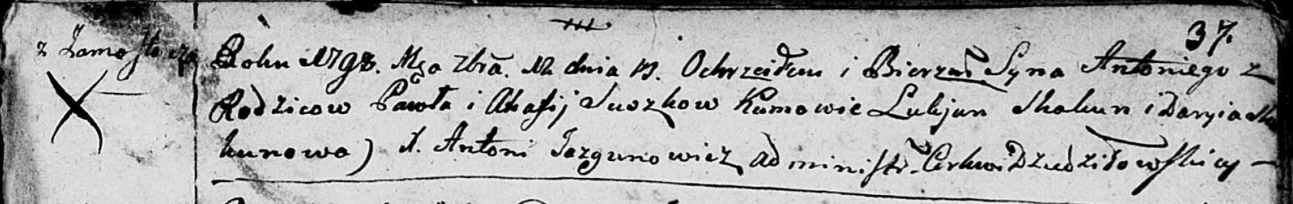 37.
z Zamościa Roku 1798. Mca Xbra. 12 dnia 13. Ochrzciłem i Bierzm Syna Antoniego z
Rodzicow Pawła i Ahafij Suszkow Kumowie Lukjan Skakun i Daryia Ska
kunowa) X. Antoni Jazgunowicz administr. Cerkwi Dziedziłowskiey —